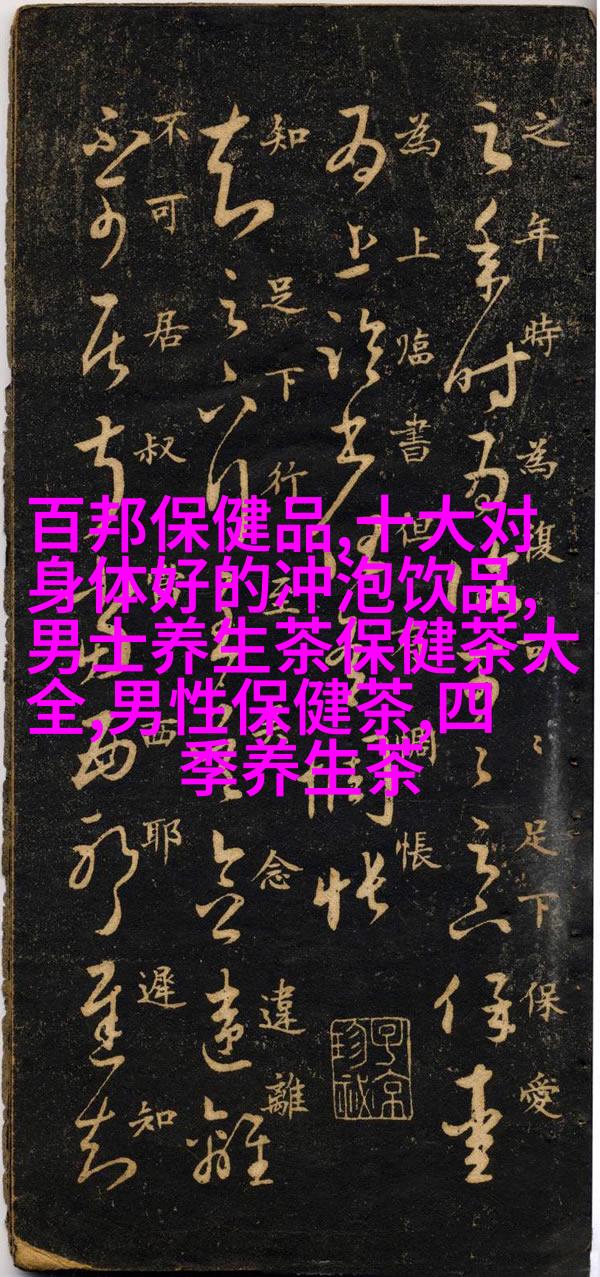 之年時為復可〻足下保愛
為上臨書但有惆悵
知足下行至吳念違離
不可居叔當西耶遲知
百邦保健品,十大对
身体好的冲泡饮品,
男士养生茶保健茶大
全,男性保健茶,四
季养生茶